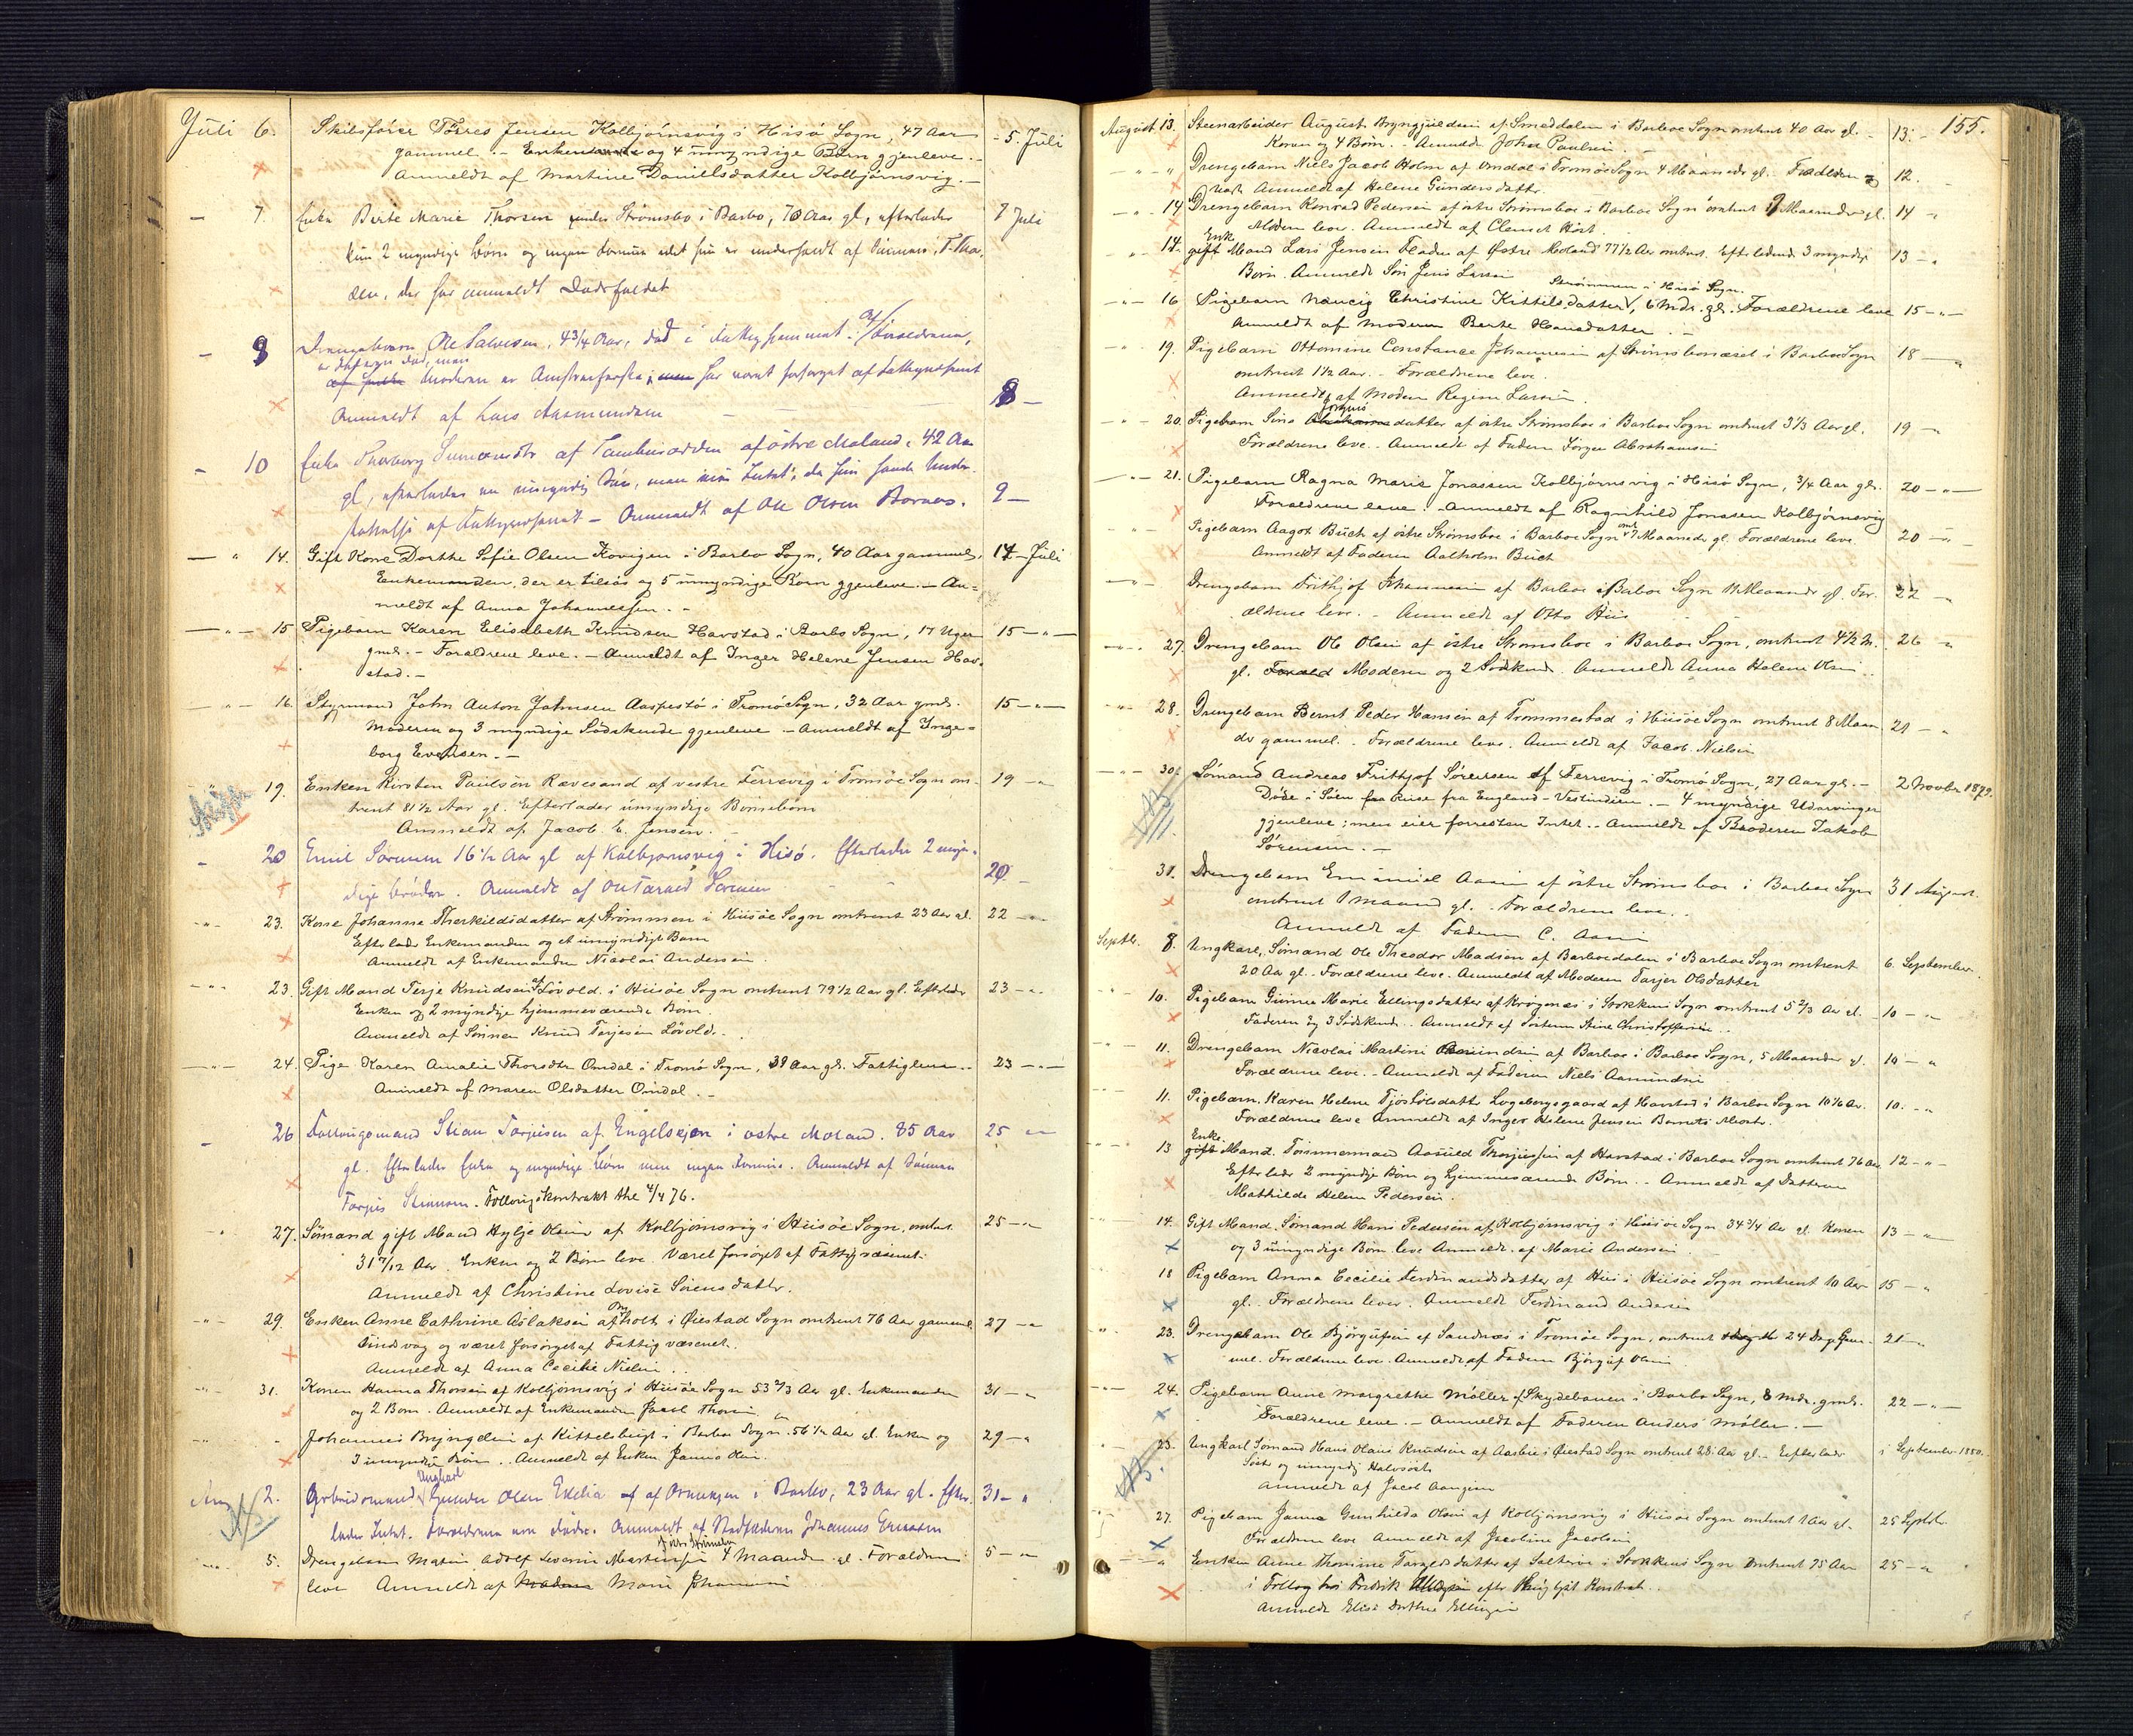 Juli 6. Skibsfører Tørres Jensen Kolbjørnsvig i Hisø Sogn, 47 Aar 5 Juli
gammel. – Enken og 4 umyndige Børn gjenleve. –
Anmeldt af Martine Daniellsdatter Kolbjørnsvig. –
– 7. Enke Berte Marie Thorsen under Strømsbo i Barbo, 70 Aar gl, efterlader 7 Juli
kun 2 myndige Børn og ingen Formue
der har anmeldt Dødsfaldet
– 8 Drengebarn Ole Salvesen, 4 3/4 Aar, død i
Moderen er har været forsørget af Fattigvæsenet 8 –
Anmeldt af Lars Aasmundsen
– 10 Enke Thorborg af østre Moland, 42 Aar
gl, efterlader en umyndig Søn, men Intet, da hun havde Under-
støttelse af Fattigvæsenet – Anmeldt af Ole Olsen Bornæs. 9 –
– " 14. Gift Kone Dorthe Sofie Olsen Kovigen i Barbo Sogn, 40 Aar gammel. 14 Juli
Enkemanden, der er tilsøs og 5 umyndige Børn gjenleve. – An-
meldt af Anna Johannessen. –
– " – 15 Pigebarn Karen Elisabeth Knudsen Havstad i Barbo Sogn, 17 Uger 15 – " –
gml. – Forældrene leve. – Anmeldt af Inger Helene Jensen Hav-
stad. –
– " – 16. Styrmand John Anton Johnsen Aaspestø i Tromø Sogn, 32 Aar gml. 15 – " –
Moderen og 3 myndige Sødskende gjenleve – Anmeldt af Inge-
borg Evensen. –
" 19. Enken Kirsten Paulsen Rævesand af vestre Færrevig i Tromøe Sogn om- 19 – "
trent 81 1/2 Aar gl. Efterlader umyndige Børnebørn
Anmeldt af Jacob E. Jensen.
– 20 Emil Sørensen 16 1/2 Aar gl af Kolbjørnsvig i Hisø. Efterlader 2 myn-
dige Brødre. Anmeldt af Sørensen 20 –
– " – 23. Kone Johanne Therkildsdatter af Strømmen i Hiisøe Sogn omtrent 23 Aar gl. 22 – " –
Efterlader Enkemanden og et umyndigt Barn
Anmeldt af Enkemanden Nicolai Andersen.
– " – 23. Gift Mand Terje Knudsen af Løvold i Hiisøe Sogn omtrent 79 1/2 Aar gl. Efterlader 23 – " –
Enken og 2 myndige hjemmeværende Børn.
Anmeldt af Sønnen Knud Terjesen Løvold.
– " – 24. Pige Karen Amalie Thorsdtr Omdal i Tromø Sogn, 39 Aar gl. Fattiglem. – 23 – " –
Anmeldt af Maren Olsdatter Omdal. –
– 26 Følaugsmand Stian Torjusen af Engelskjøn i østre Moland. 85 Aar 25 – " –
gl. Efterlader Enke og myndige Børn men ingen Formue. Anmeldt af Sønnen
Torjus Stiansen. Føllaugskontrakt thl 4/4 76.
27. Sømand gift Mand Hylje Olsen af Kolbjørnsvig i Hiisøe Sogn, omtrt 25 – " –
31 7/12 Aar. Enken og 2 Børn leve. Været forsørget af Fattigvæsenet.
Anmeldt af Christine Lovise Sørensdatter.
– " – 29. Enken Anne Cathrine Aslaksen af holt i Øiestad Sogn omtrent 76 Aar gammel. 27 – " –
Sindsvag og været forsørget af Fattigvæsenet.
Anmeldt af Anna Cecilie Nielsen.
– " – 31. Konen Hanna Thorsen af Kolbjørnsvig i Hiisøe Sogn 53 2/3 Aar gl. Enkemanden 31 – "
og 2 Børn. Anmeldt af Enkemanden Jacob Thorsen
– " – Johannes Bryngelsen af Kittelsbugt i Barboe Sogn. 56 1/2 Aar gl. Enken og 29 – "
3 umyndige Børn. Anmeldt af Enken Janna Olsen.
Ungkarl
Aug 2. Arbeidsmand Gunder Olsen af i Barbo, 23 Aar gl. Efter- 31 – "
lader Intet. Forældrene ere døde. Anmeldt af Stedfaderen Johannes Ericksen
– " – 5. Drengebarn Martin Adolf Severin Martinsen 4 Maaneder gl. Forældrene 5 – "
leve Anmeldt af Marie Johannesen
155.
August 13. Steenarbeider August Bryngjuldsen af Smeddalen i Barboe Sogn omtrent 40 Aar gl. 13. –
Konen og 4 Børn. – Anmeldt John Paulsen
– " – " Drengebarn Niels Jacob Holm af Omdal i Tromøe Sogn 4 Maaneder gl. 12. –
Anmeldt af Helene Gundersdatter.
– " – 14 Drengebarn Konrad Pedersen af østre Strømsboe i Barboe Sogn omtrent 9 Maaneder gl. 14 – "
Moderen lever. Anmeldt af Clemet Kört.
Enk
– " – 14. gift Mand Lars Jensen Fladen af Østre Moland 77 1/2 Aar omtrent. Efterladende 3 myndige 13 – "
Børn. Anmeldt Søn Jens Larsen
Strømmen i Hisø Sogn.
– " – 16 Pigebarn Nancig Christine Kittilsdatter, 6 Mdr. gl. Forældrene leve 15 – " –
Anmeldt af Moderen Berte Hansdatter. –
– " – 19. Pigebarn Ottomine Constance Johannesen af Strømsbonæset i Barboe Sogn 18 – "
omtrent 1 1/2 Aar. – Forældrene leve.
Anmeldt af Moderen Regine Larsen.
Jörgens
– " – 20. Pigebarn Sina datter af østre Strømsboe i Barboe Sogn omtrent 3 1/3 Aar gl. 19 – "
Forældrene leve. – Anmeldt af Faderen Jörgen Abrahamsen
– " – 21. Pigebarn Ragna Marie Jonassen Kolbjørnsvig i Hisø Sogn, 3/4 Aar gl. 20 – " –
Forældrene leve. – Anmeldt af Ragnhild Jonasen Kolbjørnsvig
Pigebarn Aagot Buch af østre Strømsboe i Barboe Sogn omt 7 Maaneder gl. Forældrene leve. 20 – " –
Anmeldt af Faderen Aalholm Buch
– " – Drengebarn Frithjof Johannesen af Barboe i Barboe Sogn Maaneder gl. For- 22 – "
ældrene leve. – Anmeldt af Otto Hiis
– " – 27. Drengebarn Ole Olsen af østre Strømsboe i Barboe Sogn, omtrent 4 1/2 M. 26 – "
gl. Moderen og 2 Sødskende. Anmeldt Anna Helene Olsen.
– " – 28. Drengebarn Bernt Peder Hansen af Trommestad i Hiisøe Sogn omtrent 8 Maan- 21 – "
der gammel. Forældrene leve. Anmeldt af Jacob Nielsen
– " – 30. Sømand Andreas Frithjof Sørensen af Færrevig i Tromø Sogn, 27 Aar gl. – 2 Novbr 1879.
Døde i Søen paa Reise fra England – Vestindien. – 4 myndige Udarvinger
gjenleve; men eier forresten Intet. – Anmeldt af Broderen Jakob
Sørensen. –
31. Drengebarn Emanuel Aasen af østre Strømsboe i Barboe Sogn 31 August.
omtrent 1 Maaned gl. – Forældrene leve.
Anmeldt af Faderen C. Aasen
Septb. 8. Ungkarl, Sømand Ole Theodor Madsen af Barboedalen i Barboe Sogn omtrent 6. September.
20 Aar gl. – Forældrene leve. Anmeldt af Moderen Tarjer Olsdatter
10. Pigebarn Gunnea Marie Ellingsdatter af Krøgenæs i Stokken Sogn omtrent 5 2/3 Aar gl. – 10 – "
Faderen og 3 Sødskende. Anmeldt af Søsteren Stine Christoffersen.
11. Drengebarn Nicolai Martini Aamundsen af Barboe i Barboe Sogn, 5 Maaneder gl. 10 – "
Forældrene leve. – Anmeldt af Faderen Niels Aamundsen
11. Pigebarn. Karen Helene Tjøstølsdatter Lageborgsgaard af Havstad i Barboe Sogn 10 1/6 Aar. 10. – "
Forældrene leve Anmeldt af Inger Helene Jensen Barnets Moster.
Enke
13 gift Mand. Tømmermand Aasuld Thorjussen af Havstad i Barboe Sogn omtrent 76 Aar 12 – " –
Efterlader 2 myndige Børn og hjemmeværende Børn. – Anmeldt af Datteren
Mathilde Helene Pedersen.
14. Gift Mand. Sømand Hans Pedersen af Kolbjørnsvig i Hiisøe Sogn. 34 3/4 Aar gl. Konen 13 – "
og 3 umyndige Børn leve Anmeldt af Marie Andersen
18 Pigebarn Anna Cecilie Ferdinandsdatter af Hiis i Hiisøe Sogn omtrent 10 Aar 15 – "
gl. Forældrene lever. Anmeldt Ferdinand Andersen
23. Drengebarn Ole Bjørgufsen af Sandnæs i Tromøe Sogn, omtrent 24 Dage gam- 21 – "
mel. Forældrene leve. Anmeldt af Faderen Bjørguf Olsen
24. Pigebarn Anne Margrethe Møller af Skydebanen i Barbo Sogn, 8 Mdr. gml. 22 – " –
Forældrene leve. – Anmeldt af Faderen Anders Møller. –
23. Ungkarl Sømand Hans Olaus Knudsen af Aasbie i Øiestad Sogn omtrent 28 Aar gl. – Efterlader i September 1880.
Søster og umyndig Halvsøster
Anmeldt af Jacob Aangjen
27. Pigebarn Janna Gunhilda Olsen af Kolbjørnsvig i Hiisøe Sogn omtrent 1 Aar gl. 25 Septbr.
Forældrene leve Anmeldt af Jacobine Jacobsen
" Enken Anne Thomine Targeldsdatter af Salterøe i Stokken Sogn omtrent 75 Aar 25 – "
i Føllog hos Fredrik efter Kontrakt.
Anmeldt Elise Dorthea Ellingsen